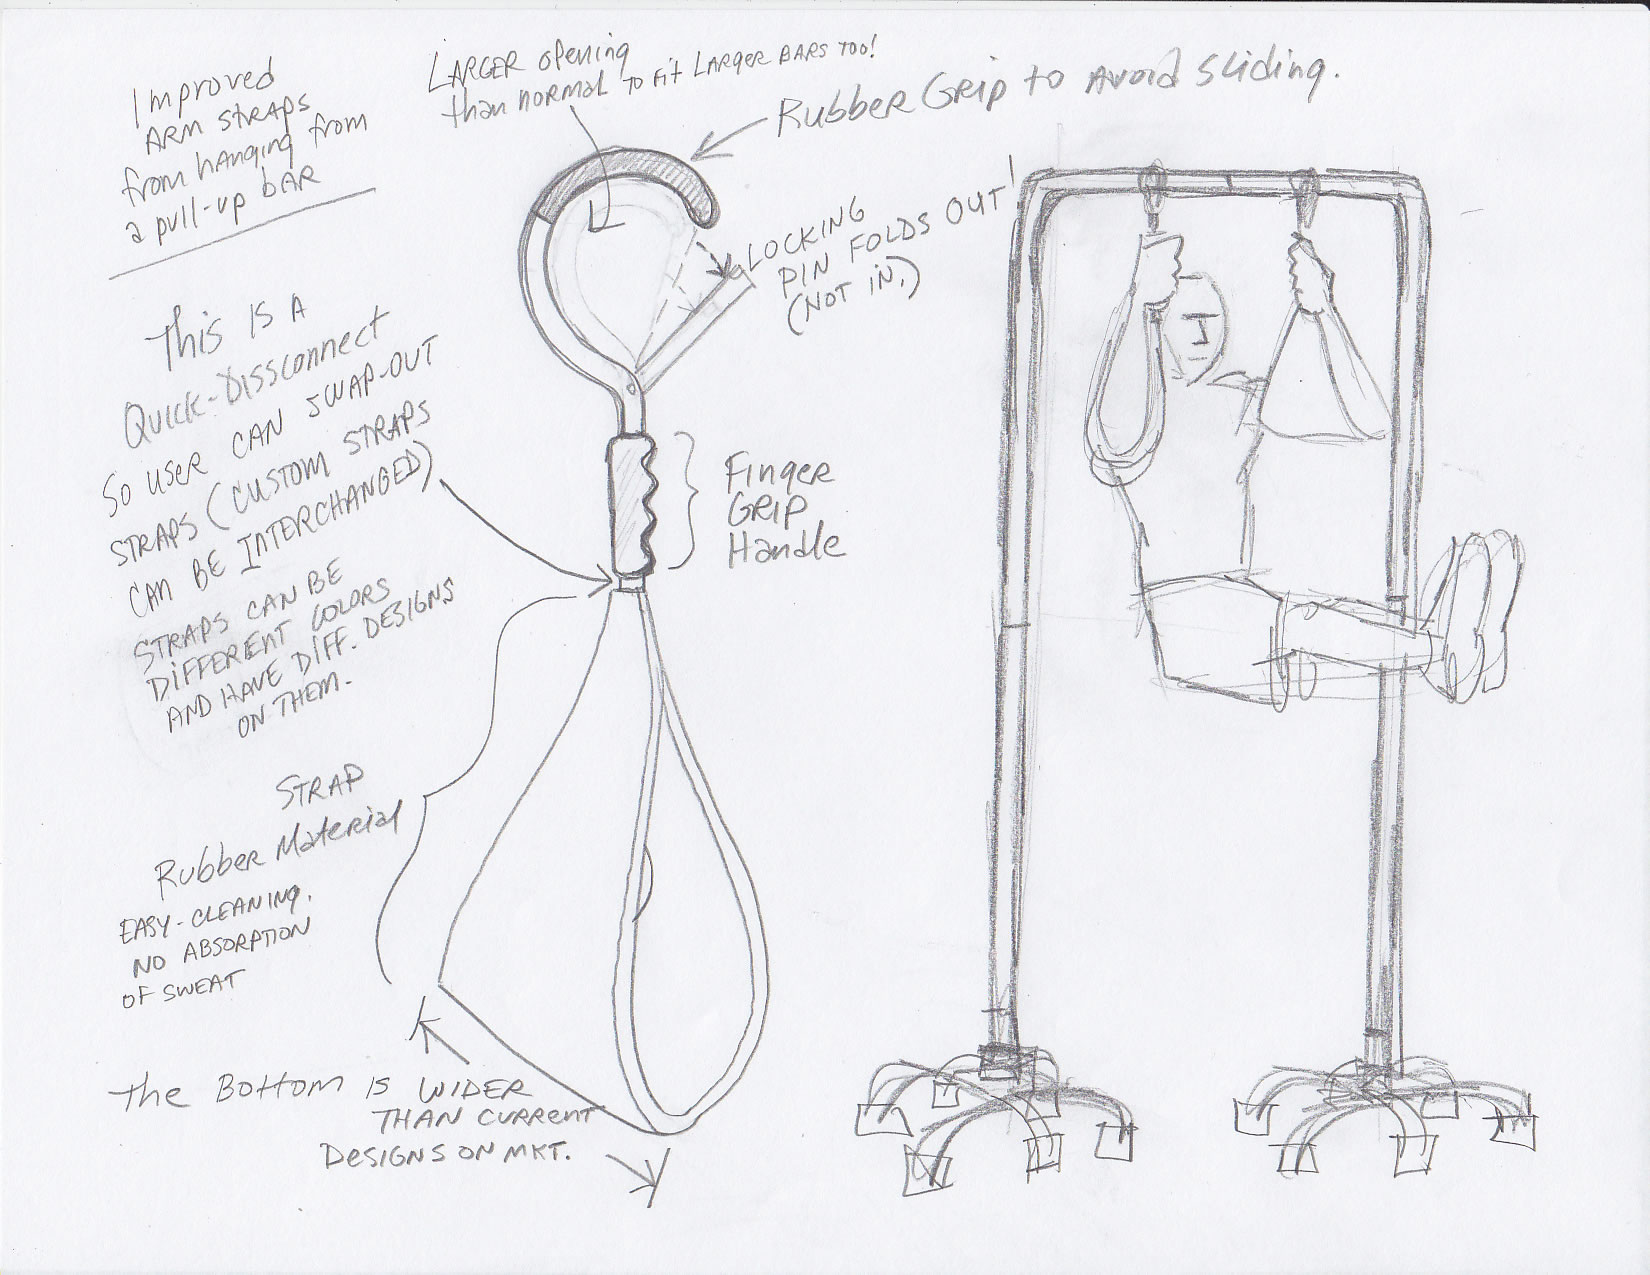 Improved
ARM STRAPS
from hanging from
a pull-up bar
LARGER opening
than normal to fit LARGER BARS TOO!
Rubber Grip to Avoid Sliding.
LOCKING
PIN FOLDS OUT!
(NOT IN.)
This is A
Quick-Dissconnect
So user can swap-out
STRAPS (CUSTOM STRAPS
CAN BE INTERCHANGED)
STRAPS CAN BE
DIFFERENT COLORS
AND HAVE DIFF. DESIGNS
ON THEM.
Finger
GRIP
Handle
STRAP
Rubber Material
EASY-CLEANING.
NO ABSORPTION
OF SWEAT
The Bottom is WIDER
THAN CURRENT
DESIGNS ON MKT.